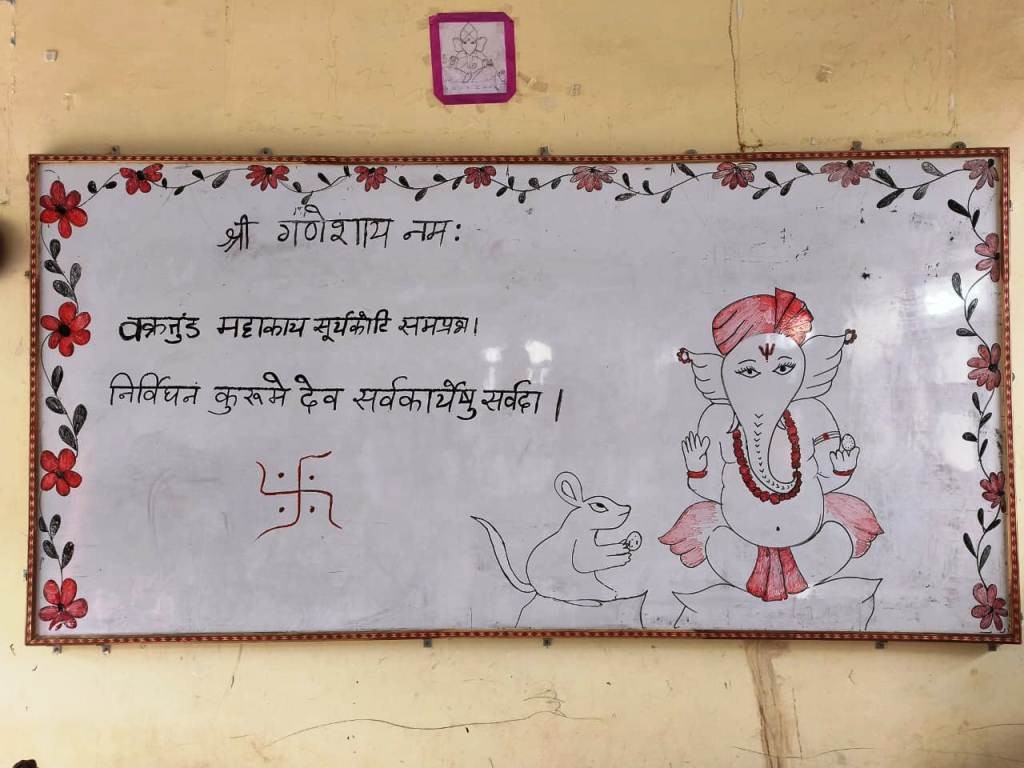 श्री गणेशाय नमः
वक्रतुंड महाकाय सूर्यकोटि समप्रभ।
निर्विघनं कुरूमे देव सर्वकार्येषु सर्वदा।